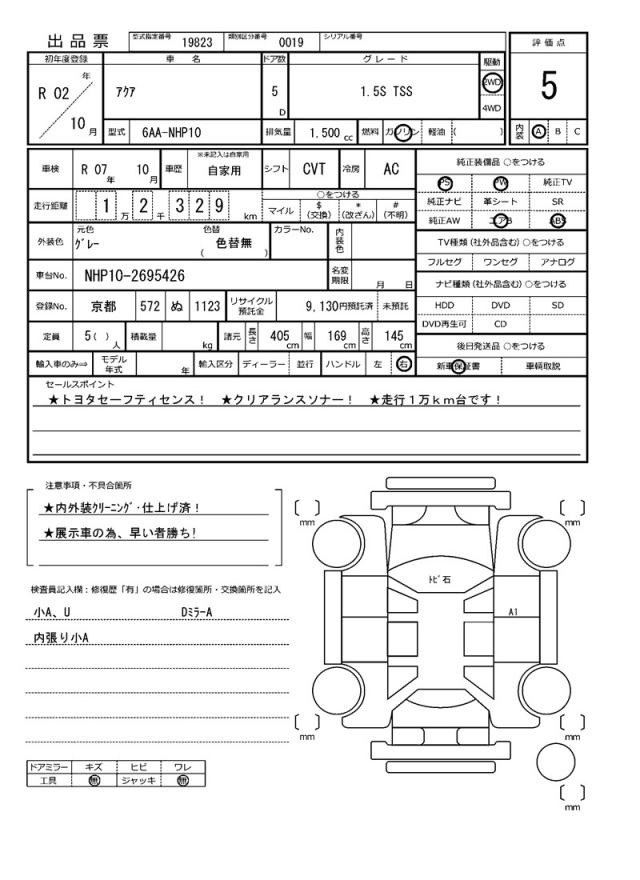 出品票 型式指定番号 19823 類別区分番号 0019 シリアル番号
初年度登録 車名 ドア数 グレード 駆動 評価点
R 02 年 10 月 ｱｸｱ 5 D 1.5S TSS 2WD 4WD 5
型式 6AA-NHP10 排気量 1.500 cc 燃料 ガソリン 軽油 ( ) 内装 A B C
車検 R 07 年 10 月 車歴 ※未記入は自家用 自家用 シフト CVT 冷房 AC
走行距離 1 万 2 千 3 2 9 km ○をつける
マイル $ (交換) * (改ざん) # (不明)
外装色 元色 ｸﾞﾚｰ 色替 色替無 ( ) カラーNo. 内装色
車台No. NHP10-2695426 名変期限 月 日
登録No. 京都 572 ぬ 1123 リサイクル預託金 9,130円預託済 未預託
定員 5 ( ) 人 積載量 kg 諸元 長さ 405 cm 幅 169 cm 高さ 145 cm
輸入車のみ⇒ モデル年式 年 輸入区分 ディーラー 並行 ハンドル 左 右
純正装備品 ○をつける
PS PW 純正TV
純正ナビ 革シート SR
純正AW エアB ABS
TV種類 (社外品含む) ○をつける
フルセグ ワンセグ アナログ
ナビ種類 (社外品含む) ○をつける
HDD DVD SD
DVD再生可 CD
後日発送品 ○をつける
新車保証書 車輌取説
セールスポイント
★トヨタセーフティセンス！ ★クリアランスソナー！ ★走行１万ｋｍ台です！
注意事項・不具合箇所
★内外装ｸﾘｰﾆﾝｸﾞ･仕上げ済！
★展示車の為、早い者勝ち!
検査員記入欄：修復歴「有」の場合は修復箇所・交換箇所を記入
小A、U DﾐﾗｰA
内張り小A
ドアミラー キズ ヒビ ワレ
工具 無 ジャッキ 無
[ ] mm [ ] mm
ﾄﾋﾞ石
A1
[ ] mm [ ] mm
[ ] mm